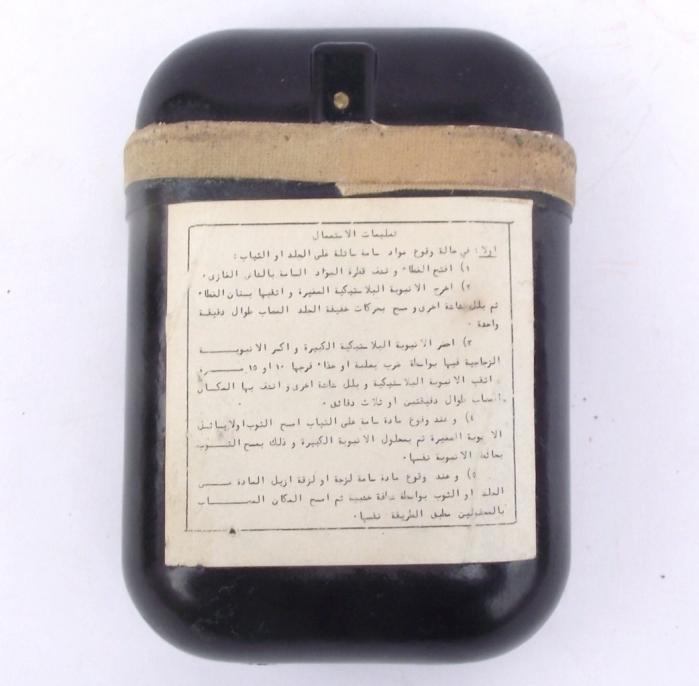 تعليمات الاستعمال
اولا: في حالة وقوع مواد سامة سائلة على الجلد او الثياب:
١) افتح الغطاء و نشف قطرة المواد السامة بالشاش الغازي.
٢) اخرج الانبوبة البلاستيكية الصغيرة و اثقبها بسنان الغطاء
ثم بلل شاشة اخرى و مسح بحركات خفيفة الجلد المصاب طوال دقيقة
واحدة.
٣) احضر الانبوبة البلاستيكية الكبيرة و اكسر الانبوبة
الزجاجية فيها بواسطة ضرب بعلبة او حذاء فرجها ١٠ او ١٥ مرة.
اثقب الانبوبة البلاستيكية و بلل شاشة اخرى و انشف بها المكان
المصاب طوال دقيقتين او ثلاث دقائق.
٤) و عند وقوع مادة سامة على الثياب امسح الثوب اولا بسائل
الانبوبة الصغيرة ثم بمحلول الانبوبة الكبيرة و ذلك بمسح الثوب
الانبوبة نفسها.
٥) و عند وقوع مادة سامة لزجة او لزقة ازيل المادة من
الجلد او الثوب بواسطة خشبية ثم امسح المكان المصاب
بالمحلولين الطريقة نفسها.